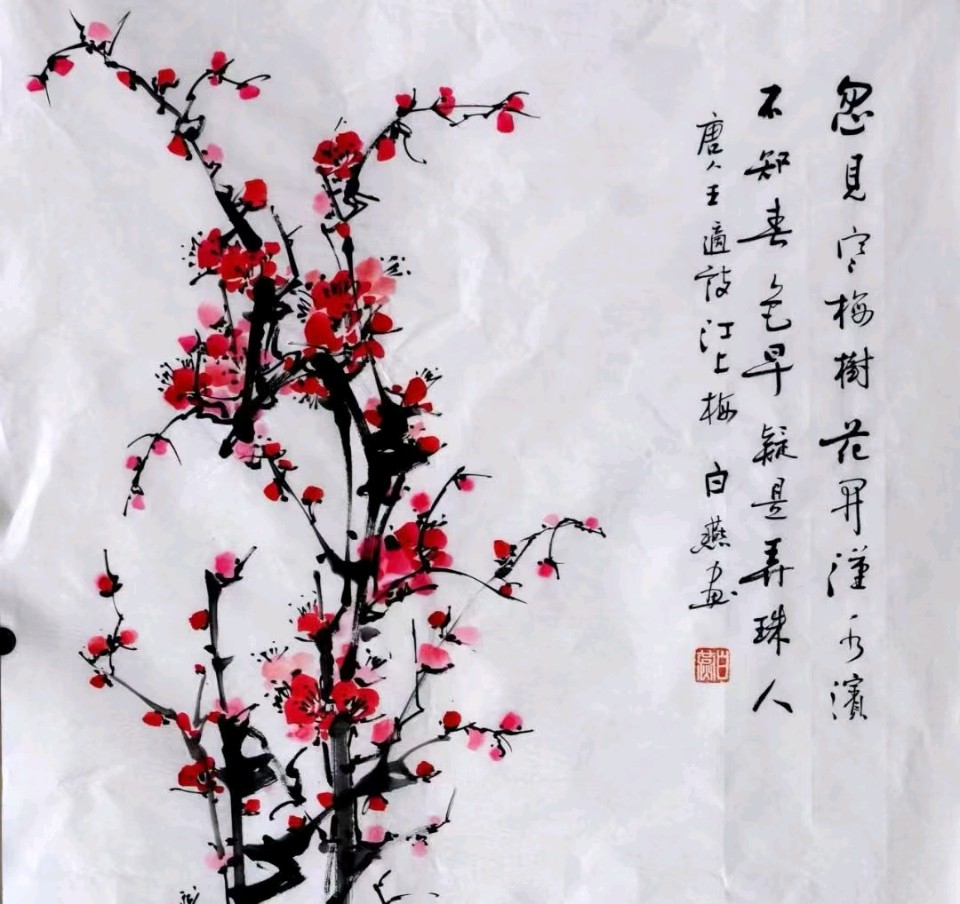 忽見寒梅樹花開漢水濱
不知春色早疑是弄珠人
唐人王適詩江上梅 白燕画
白燕